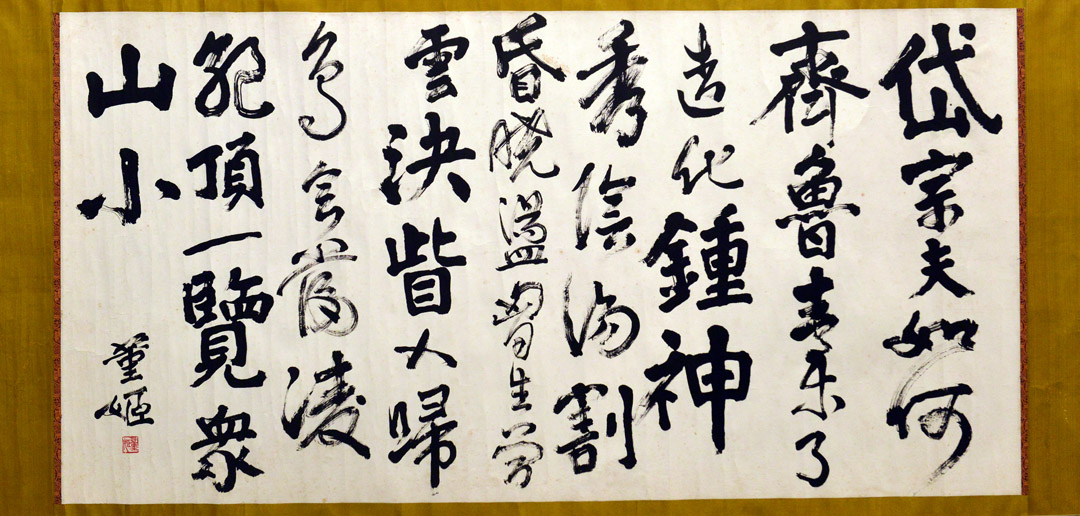 岱宗夫如何
齊魯青未了
造化鍾神
秀陰陽割
昏曉盪胷生曾
雲決眥入歸
鳥會當凌
絕頂一覽衆
山小
董姬